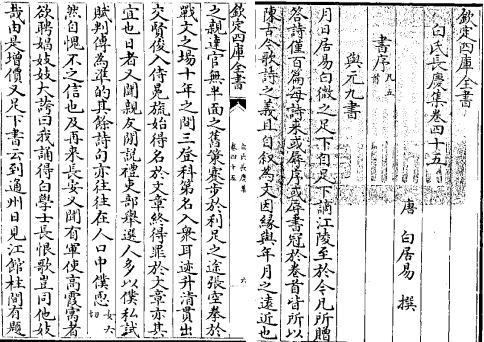 欽定四庫全書
白氏長慶集卷四十五
唐 白居易 撰
書序 凡五首
與元九書
月日居易白微之足下自足下謫江陵至於今凡所贈
答詩僅百篇每詩來或辱序或辱書冠於卷首皆所以
陳古今歌詩之義且自叙為文因緣與年月之遠近也
欽定四庫全書
白氏長慶集
卷四十五
六
之親達官無半面之舊策蹇步於利足之途張空拳於
戰文之場十年之間三登科第名入衆耳迹升清貫出
交賢俊入侍冕旒始得名於文章終得罪於文章亦其
宜也日者又聞親友間說禮吏部舉選人多以僕私試
賦判傳為準的其餘詩句亦往往在人口中僕恧女六切
然自愧不之信也及再來長安又聞有軍使高霞寓者
欲聘娼妓妓大誇曰我誦得白學士長恨歌豈同他妓
哉由是增價又足下書云到通州日見江館柱間有題